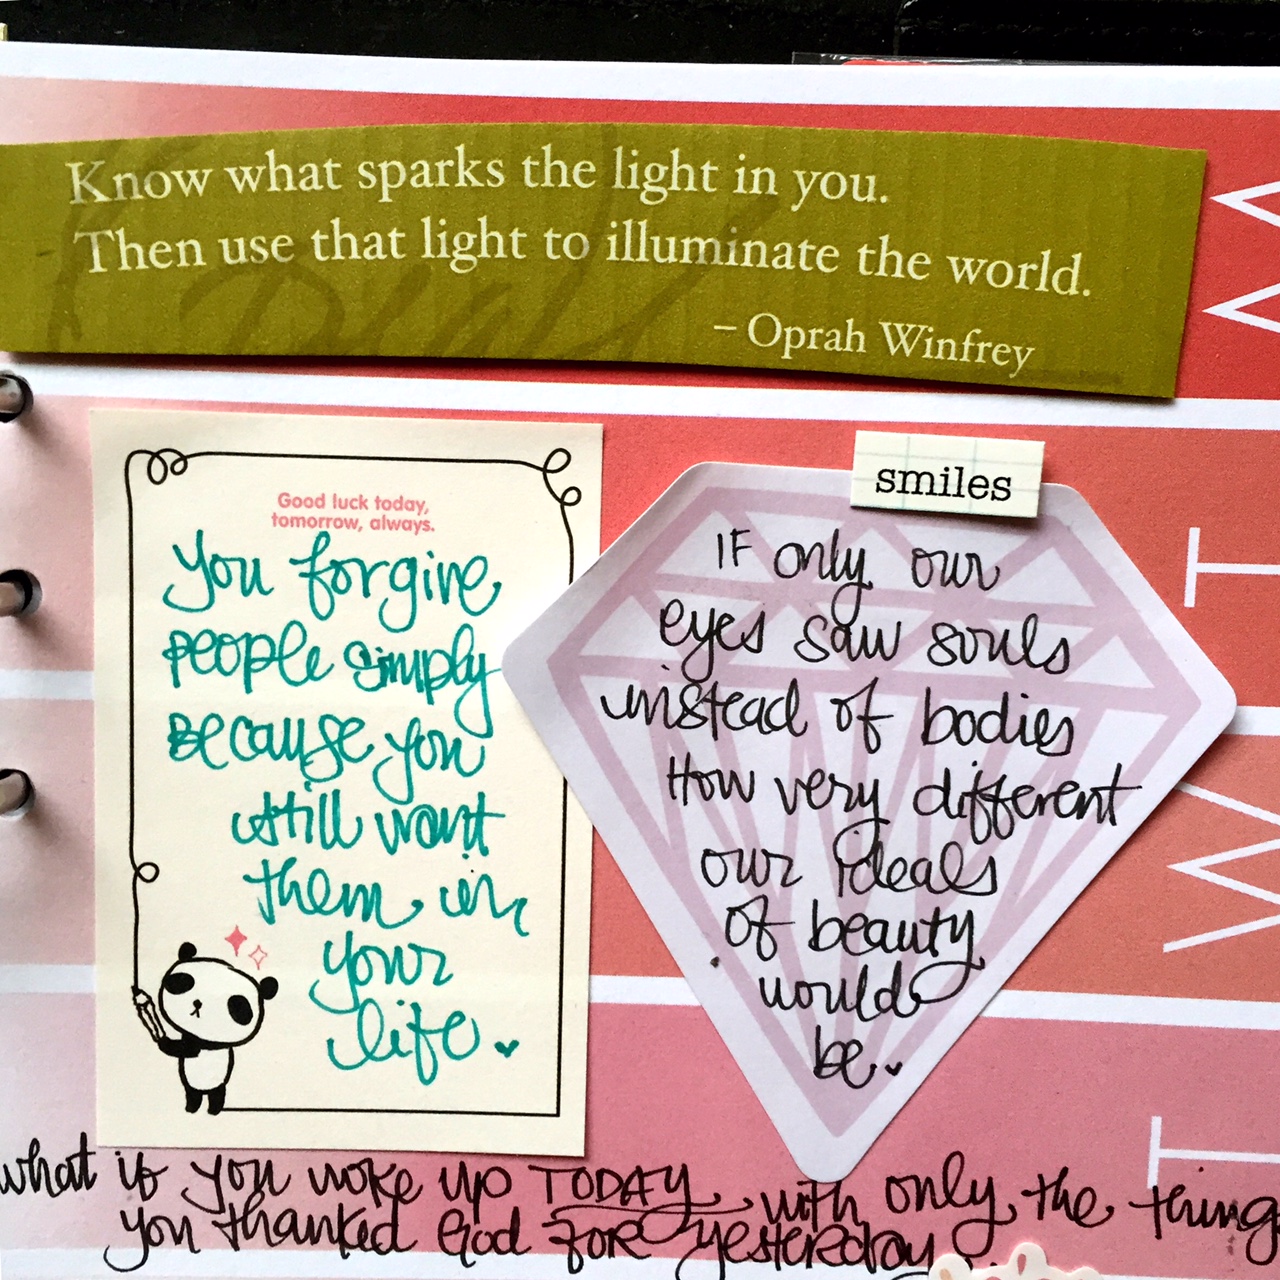 Know what sparks the light in you.
Then use that light to illuminate the world.
– Oprah Winfrey
Good luck today,
tomorrow, always.
You forgive
people simply
because you
still want
them in
your
life.
smiles
IF only our
eyes saw souls
instead of bodies
How very different
our ideals
of beauty
would
be.
what if you woke up TODAY with only the thing
you thanked God for yesterday..